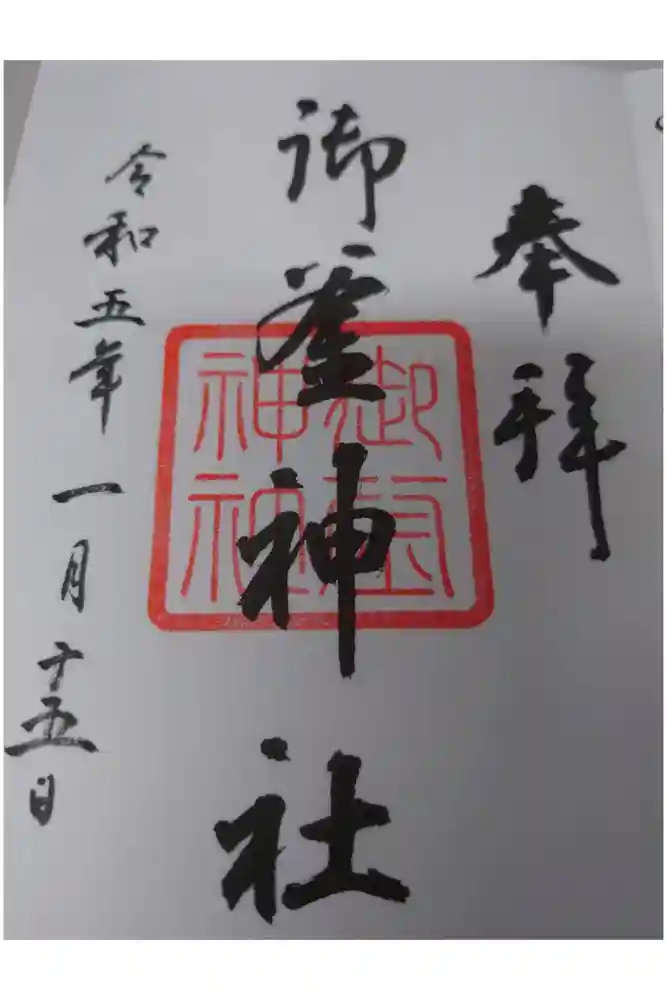 奉拝
御釜神社
御釜神社
令和五年一月十五日